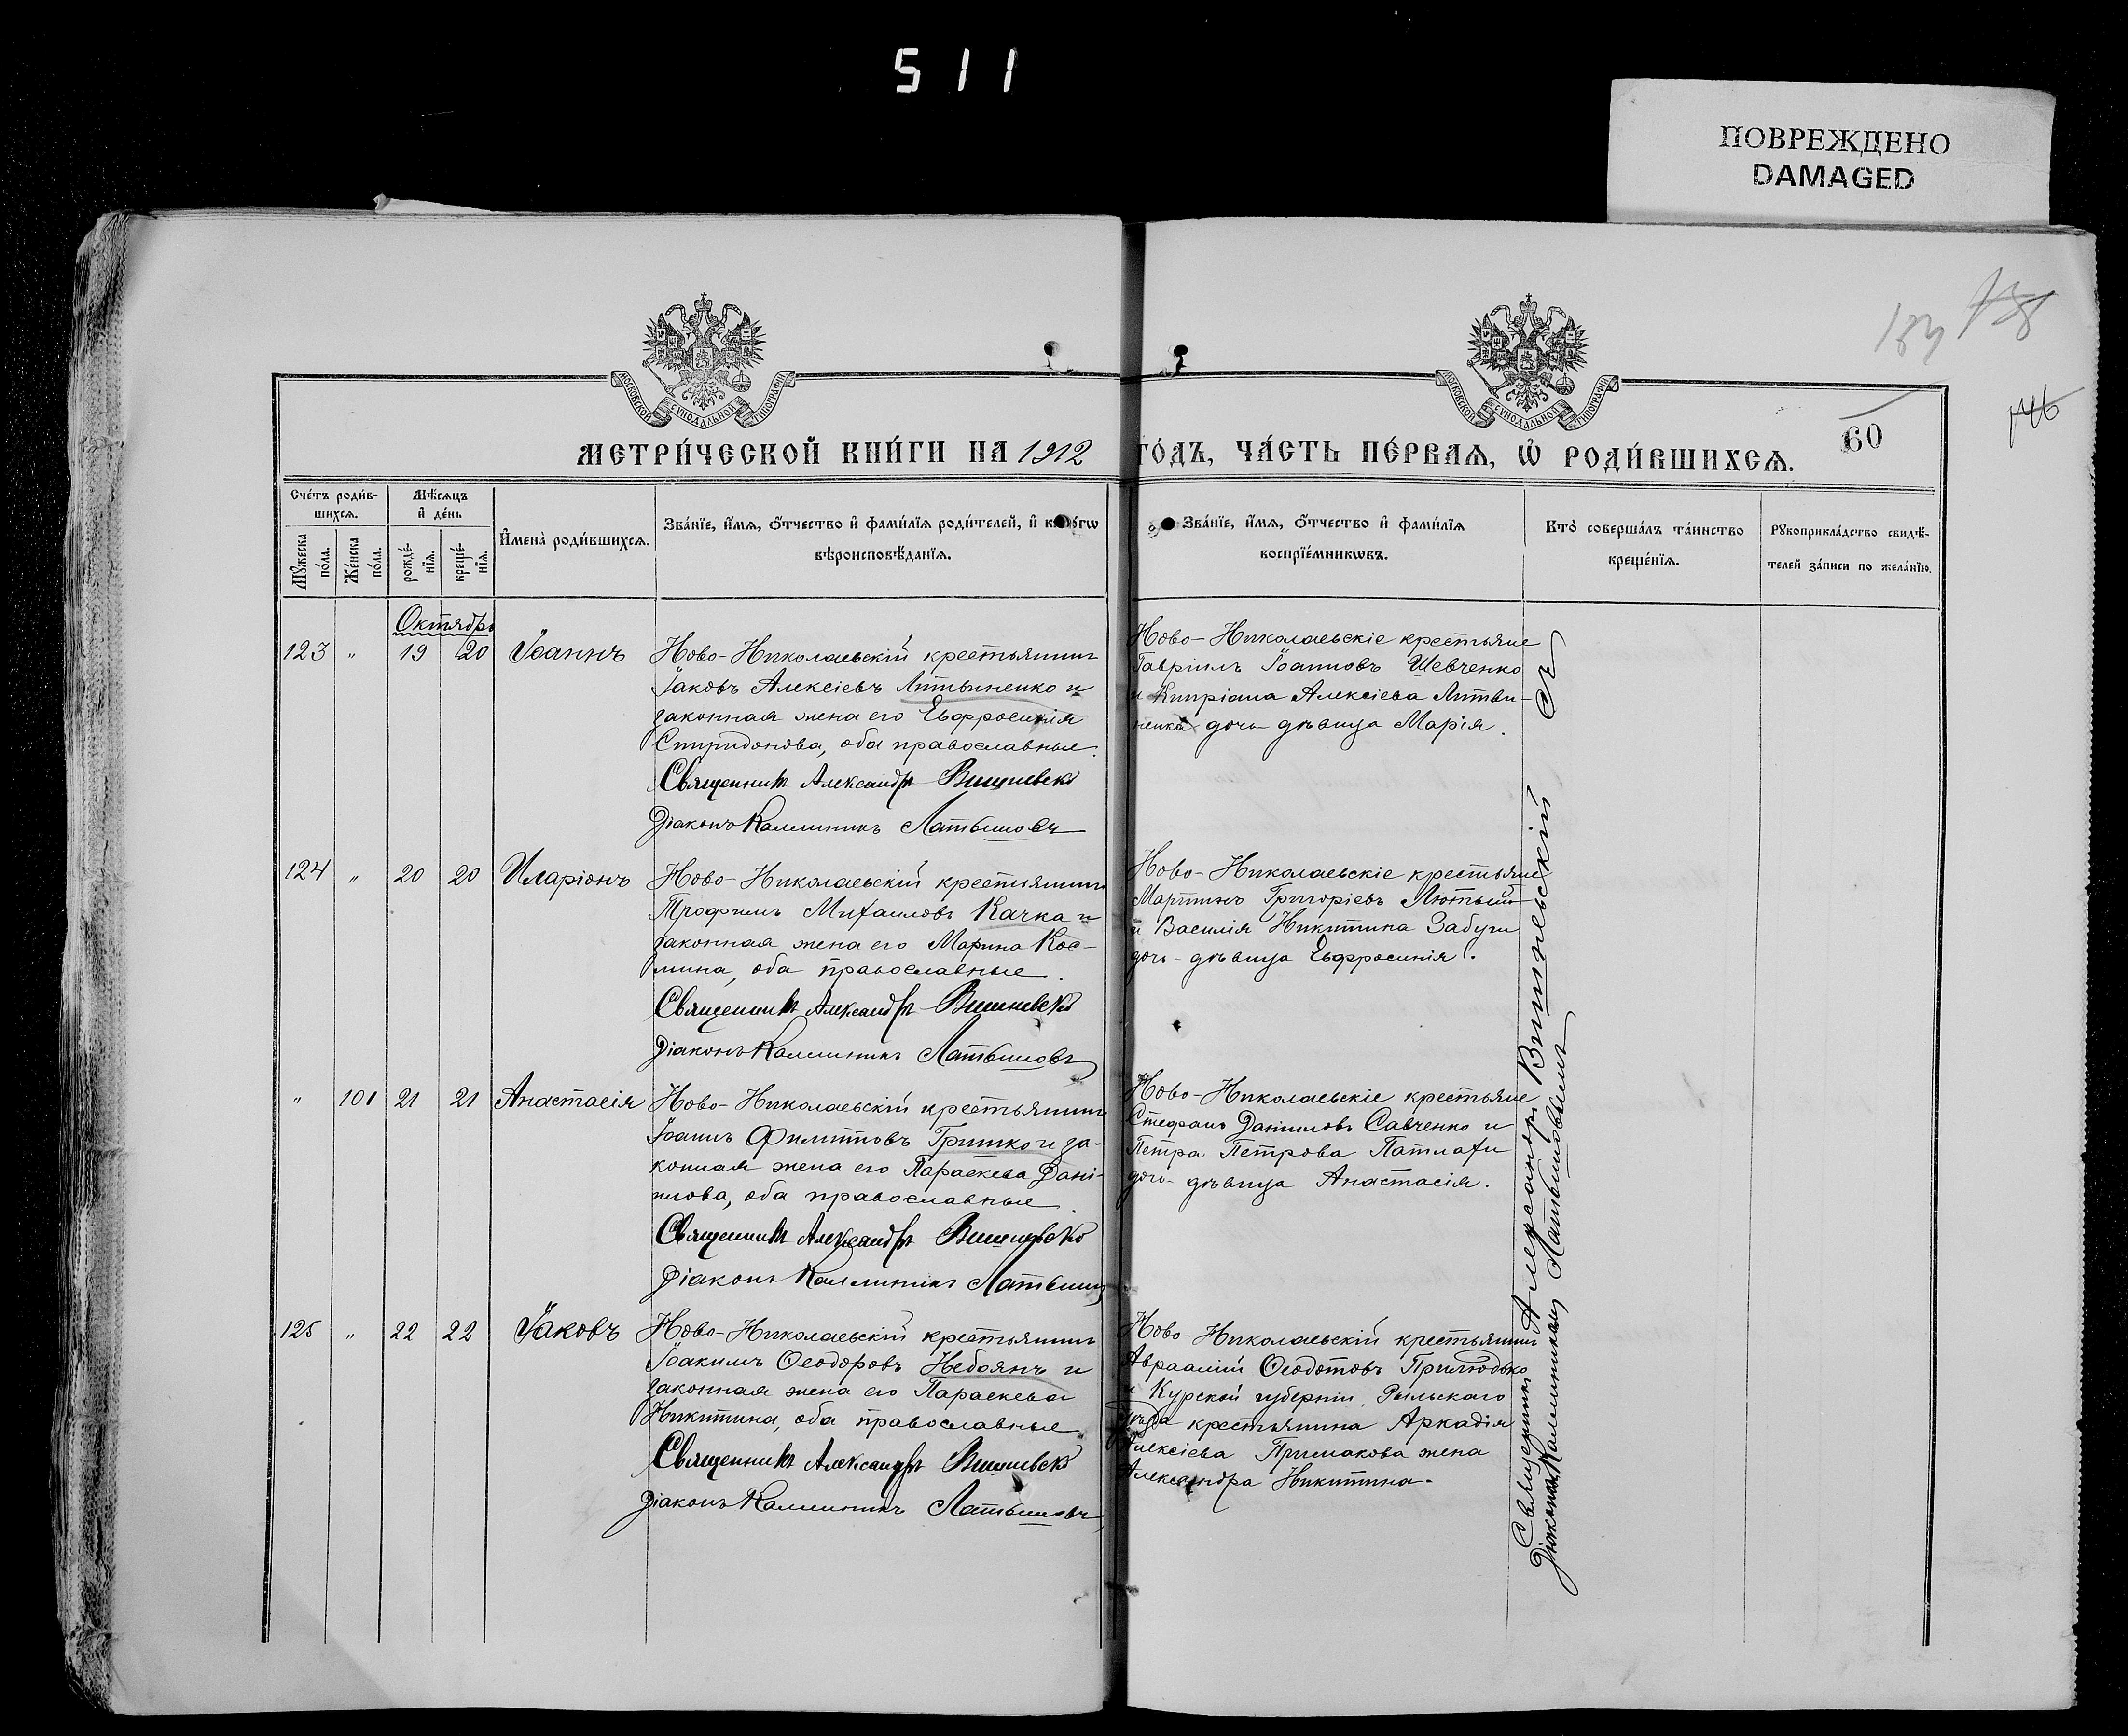 511
ПОВРЕЖДЕНО
DAMAGED
МОСКОВСКОЙ СѴНОДАЛЬНОЙ ТИПОГРАФІИ
МОСКОВСКОЙ СѴНОДАЛЬНОЙ ТИПОГРАФІИ
146
60
МЕТРИ́ЧЕСКОЙ КНИ́ГИ НА 1912 ГО́ДЪ, ЧА́СТЬ ПЕ́РВАѦ, Ѡ РОДИ́ВШИХСѦ.
Сче́тъ роди́в-
шихсѧ.
Мѣ́сѧцъ
и҆ де́нь
Мꙋ́жеска
по́ла.
Же́нска
по́ла.
рожде́-
нїѧ.
креще́-
нїѧ.
И҆мена̀ роди́вшихсѧ.
Зва́нїе, и҆́мѧ, ѻ҆́тчество и҆ фами́лїѧ роди́телей, и҆ като́гѡ
вѣроисповѣ́данїѧ.
Зва́нїе, и҆́мѧ, ѻ҆́тчество и҆ фами́лїѧ
воспрїе́мникѡвъ.
Кто̀ соверша́лъ та́инство
креще́нїѧ.
Рꙋкоприкла́дство свидѣ́-
телей за́писи по жела́нїю.
Октябрь
123 " 19 20 Іоаннъ
Ново-Николаевскій крестьянинъ
Іаковъ Алексіевъ Литвиненко и
законная жена его Евфросинія
Спиридонова, оба православные.
Священникъ Александръ Вишневскій
Діаконъ Каллиникъ Латышовъ
Ново-Николаевскіе крестьяне
Гавріилъ Іоанновъ Шевченко
и Кипріана Алексіева Литви-
ненка дочь дѣвица Марія.
124 " 20 20 Иларіонъ
Ново-Николаевскій крестьянинъ
Трофимъ Михаиловъ Качка и
законная жена его Марина Кос-
мина, оба православные.
Священникъ Александръ Вишневскій
Діаконъ Каллиникъ Латышовъ
Ново-Николаевскіе крестьяне
Мартинъ Григоріевъ Лютый
и Василія Никитина Забуги
дочь-дѣвица Евфросинія.
" 101 21 21 Анастасія
Ново-Николаевскій крестьянинъ
Іоаннъ Филипповъ Гришко и за-
конная жена его Параскева Дані-
илова, оба православные.
Священникъ Александръ Вишневскій
Діаконъ Каллиникъ Латышовъ
Ново-Николаевскіе крестьяне
Стефанъ Даниловъ Савченко и
Петра Петрова Патлахи
дочь-дѣвица Анастасія.
125 " 22 22 Іаковъ
Ново-Николаевскій крестьянинъ
Іоакимъ Ѳеодоровъ Небоянъ и
законная жена его Параскева
Никитина, оба православные.
Священникъ Александръ Вишневскій
Діаконъ Каллиникъ Латышовъ
Ново-Николаевскій крестьянинъ
Авраамій Ѳеодотовъ Прилюдько
и Курской губерніи, Рыльскаго
уѣзда крестьянина Аркадія
Алексіева Примакова жена
Александра Никитина.
Священникъ Александръ Вишневскій съ
Діакономъ Каллиникомъ Латышовымъ